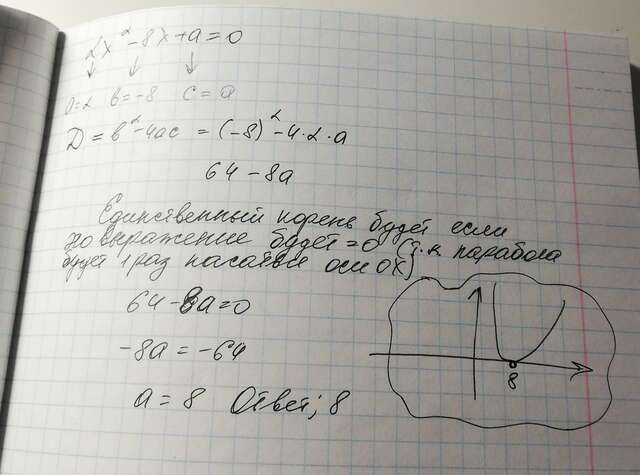 2x² - 8x + a = 0
a=2 b=-8 c=a
D = b² - 4ac = (-8)² - 4·2·a
64 - 8a
Единственный корень будет если
это выражение будет =0 (т.к парабола
будет 1 раз касаться оси OX)
64 - 8a = 0
-8a = -64
8
a = 8 Ответ; 8